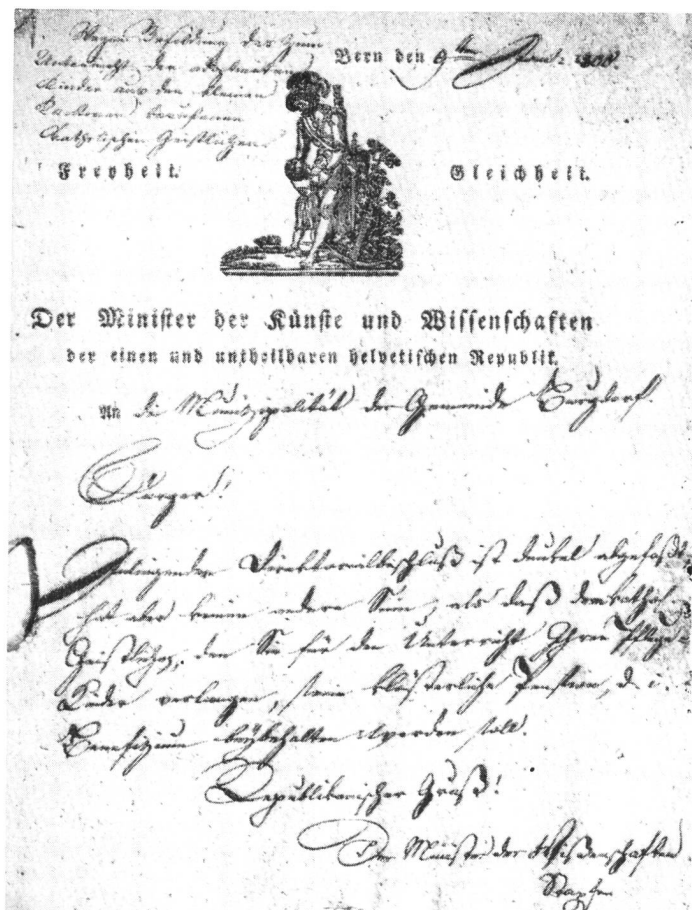 Wegen Besoldung des zum
Unterricht der
Kinder aus den kleinen
Kantonen berufenen
Catholischen Geistlichen
Bern den 9ten Juni 1800
Freyheit. Gleichheit.
Der Minister der Künste und Wissenschaften
der einen und untheilbaren helvetischen Republik.
An die Munizipalität der Gemeinde Burgdorf.
Bürger!
Direktorialbeschluß ist dunkel abgefaßt,
hat aber keinen andern Sinn, als daß dem kathol.
Geistlichen, den Sie für den Unterricht Ihrer Pflege-
Kinder verlangen, seine klösterliche Pension, d. i.
Benefizium beybehalten werden soll.
Republikanischer Gruß!
Der Minister der Wißenschaften.
Stapfer